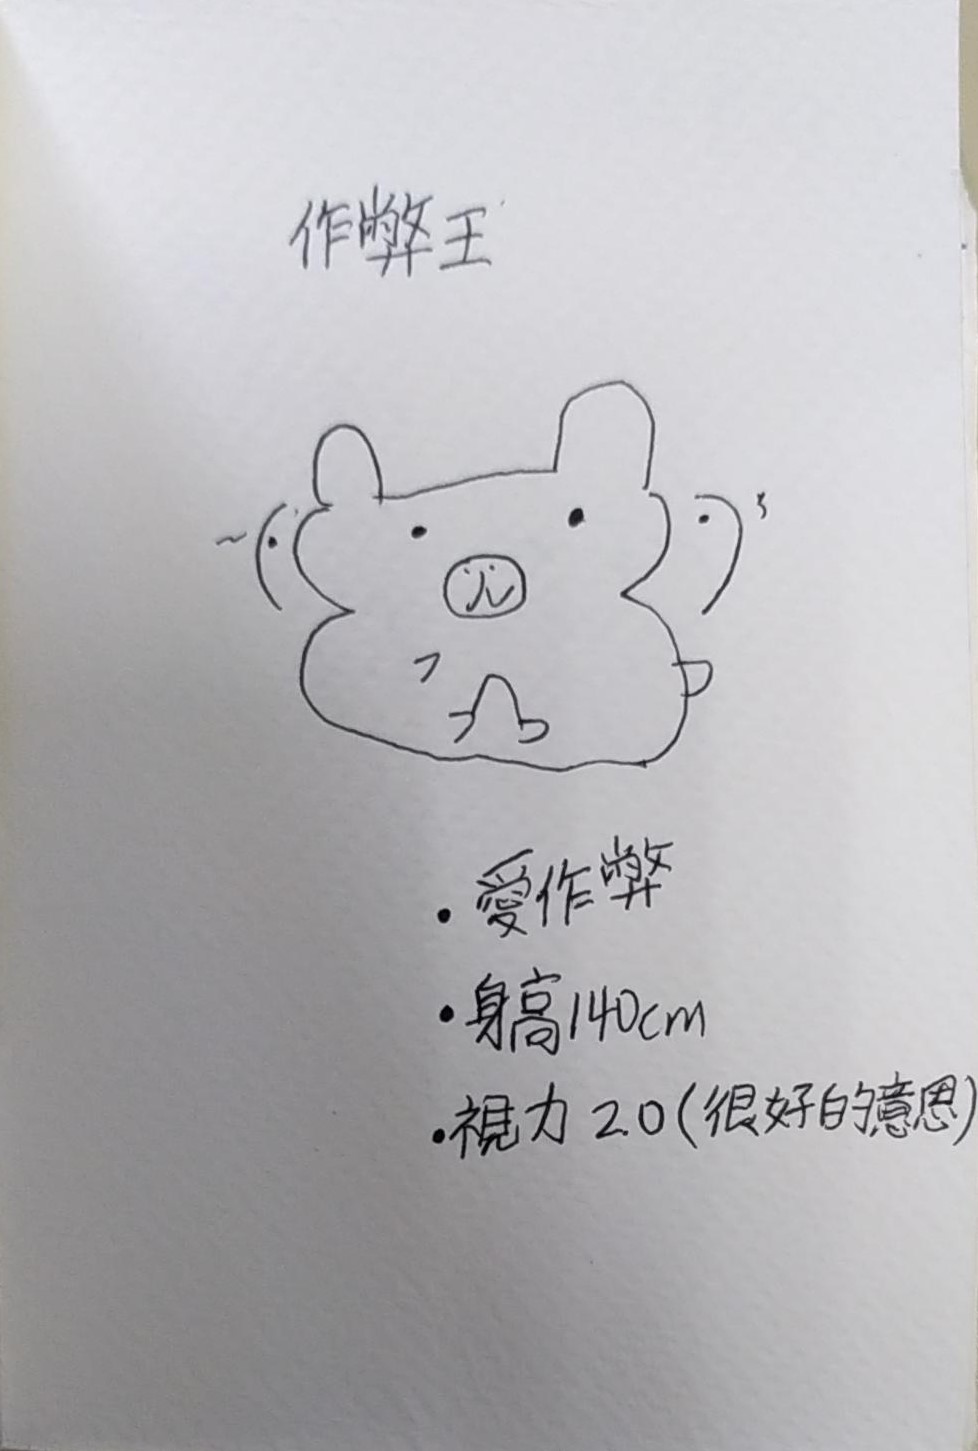 作弊王
•愛作弊
•身高140cm
•視力2.0(很好的意思)